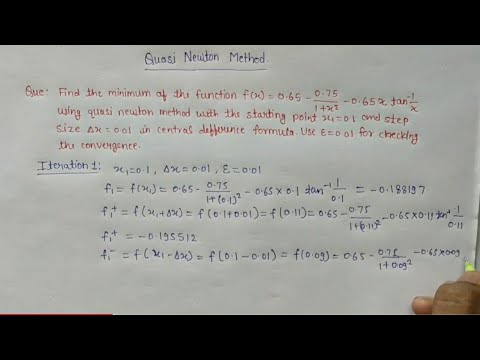 Quasi Newton Method.
Que: Find the minimum of the function f(x) = 0.65 - 0.75/(1+x²) - 0.65x tan⁻¹ 1/x
using quasi newton method with the starting point x₁=0.1 and step
size Δx = 0.01 in central difference formula. Use ε=0.01 for checking
the convergence.
Iteration 1: x₁=0.1, Δx = 0.01, ε=0.01
f₁ = f(x₁) = 0.65 - 0.75/(1+(0.1)²) - 0.65×0.1 tan⁻¹ 1/0.1 = -0.188197
f₁⁺ = f(x₁+Δx) = f(0.1+0.01) = f(0.11) = 0.65 - 0.75/(1+(0.11)²) - 0.65×0.11 tan⁻¹ 1/0.11
f₁⁺ = -0.195512
f₁⁻ = f(x₁-Δx) = f(0.1-0.01) = f(0.09) = 0.65 - 0.75/(1+0.09²) - 0.65×0.09